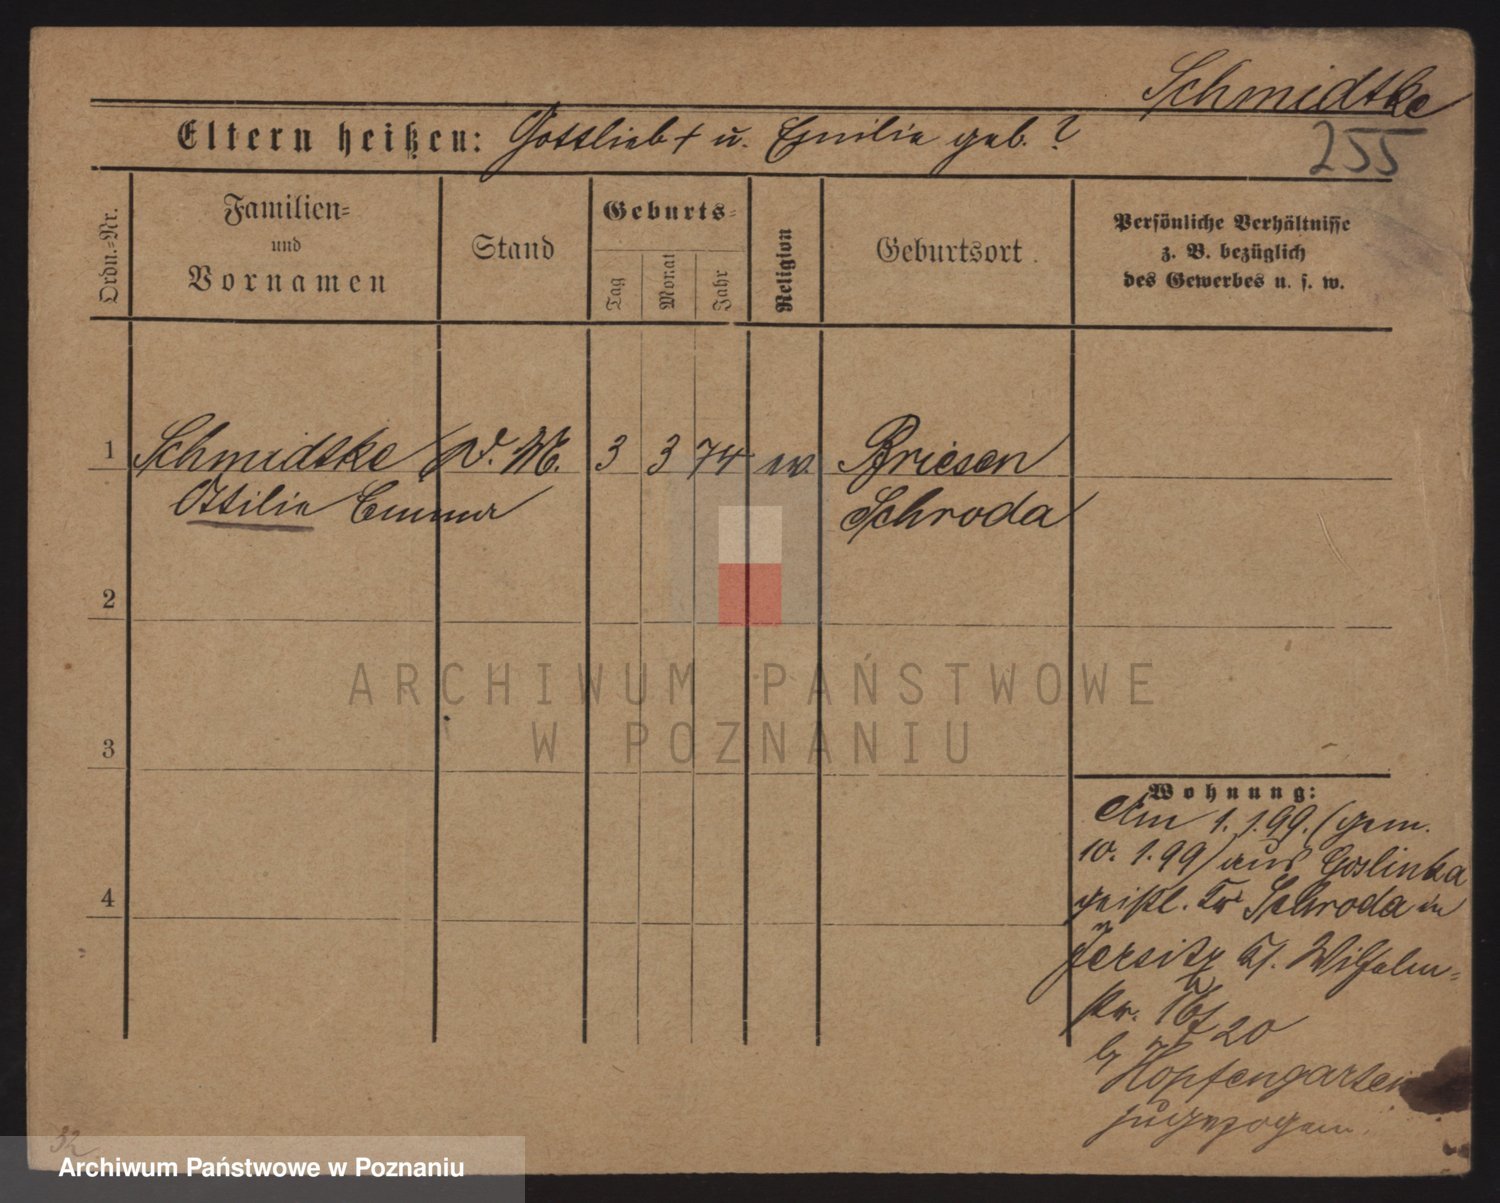 Schmidtke
255
Eltern heißen: Gottlieb † u. Emilie geb. ?
Ordn.-Nr.
Familien-
und
Vornamen
Stand
Geburts-
Tag
Monat
Jahr
Religion
Geburtsort.
Persönliche Verhältnisse
z. B. bezüglich
des Gewerbes u. s. w.
1 Schmidtke D. M. 3 3 74 ev Briesen
Ottilie Emma Schroda
2
3
4
Wohnung:
Am 1.1.99. (gem.
10.1.99) aus Goslinka
Kr Schroda in
Jersitz Wilhelm-
str. 20
b/ Hopfengarten
zugezogen.
32
ARCHIWUM PAŃSTWOWE
W POZNANIU
Archiwum Państwowe w Poznaniu